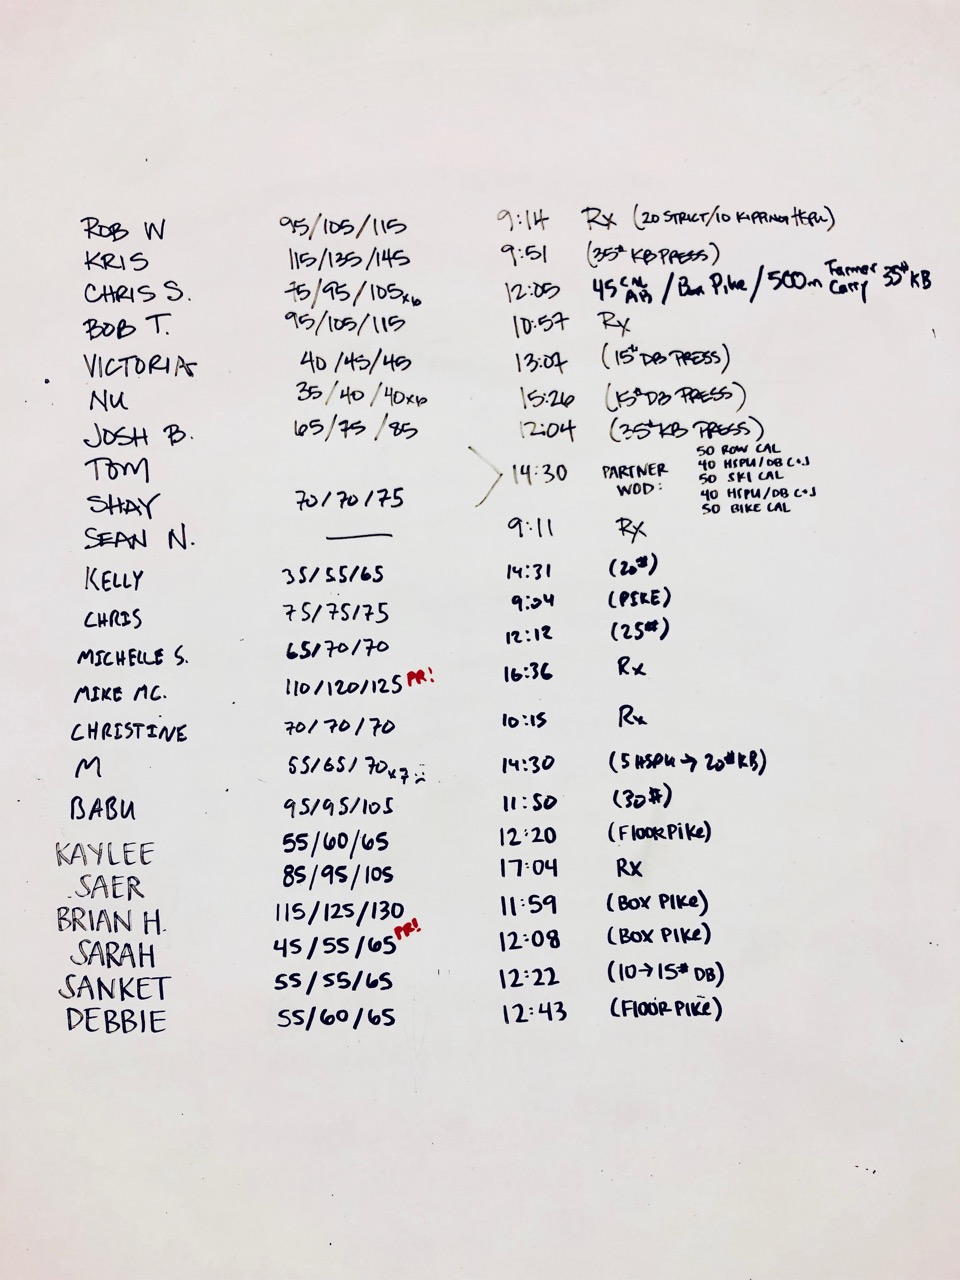 ROB W 95/105/115 9:14 Rx (20 STRICT/10 KIPPING HSPU)
KRIS 115/135/145 9:51 (35# KB PRESS)
CHRIS S. 75/95/105x6 12:05 45 CAL AB / Box Pike / 500m Farmer Carry 35# KB
BOB T. 95/105/115 10:57 Rx
VICTORIA 40/45/45 13:07 (15# DB PRESS)
NU 35/40/40x6 15:26 (15# DB PRESS)
JOSH B. 65/75/85 12:04 (35# KB PRESS)
TOM
SHAY 70/70/75
14:30 PARTNER WOD:
50 ROW CAL
40 HSPU/DB C+J
50 SKI CAL
40 HSPU/DB C+J
50 BIKE CAL
SEAN N. — 9:11 Rx
KELLY 35/55/65 14:31 (20#)
CHRIS 75/75/75 9:04 (PIKE)
MICHELLE S. 65/70/70 12:12 (25#)
MIKE MC. 110/120/125 PR! 16:36 Rx
CHRISTINE 70/70/70 10:15 Rx
M 55/65/70x7 :( 14:30 (5 HSPU → 20# KB)
BABU 95/95/105 11:50 (30#)
KAYLEE 55/60/65 12:20 (FLOOR PIKE)
SAER 85/95/105 17:04 Rx
BRIAN H. 115/125/130 11:59 (BOX PIKE)
SARAH 45/55/65 PR! 12:08 (BOX PIKE)
SANKET 55/55/65 12:22 (10→15# DB)
DEBBIE 55/60/65 12:43 (FLOOR PIKE)